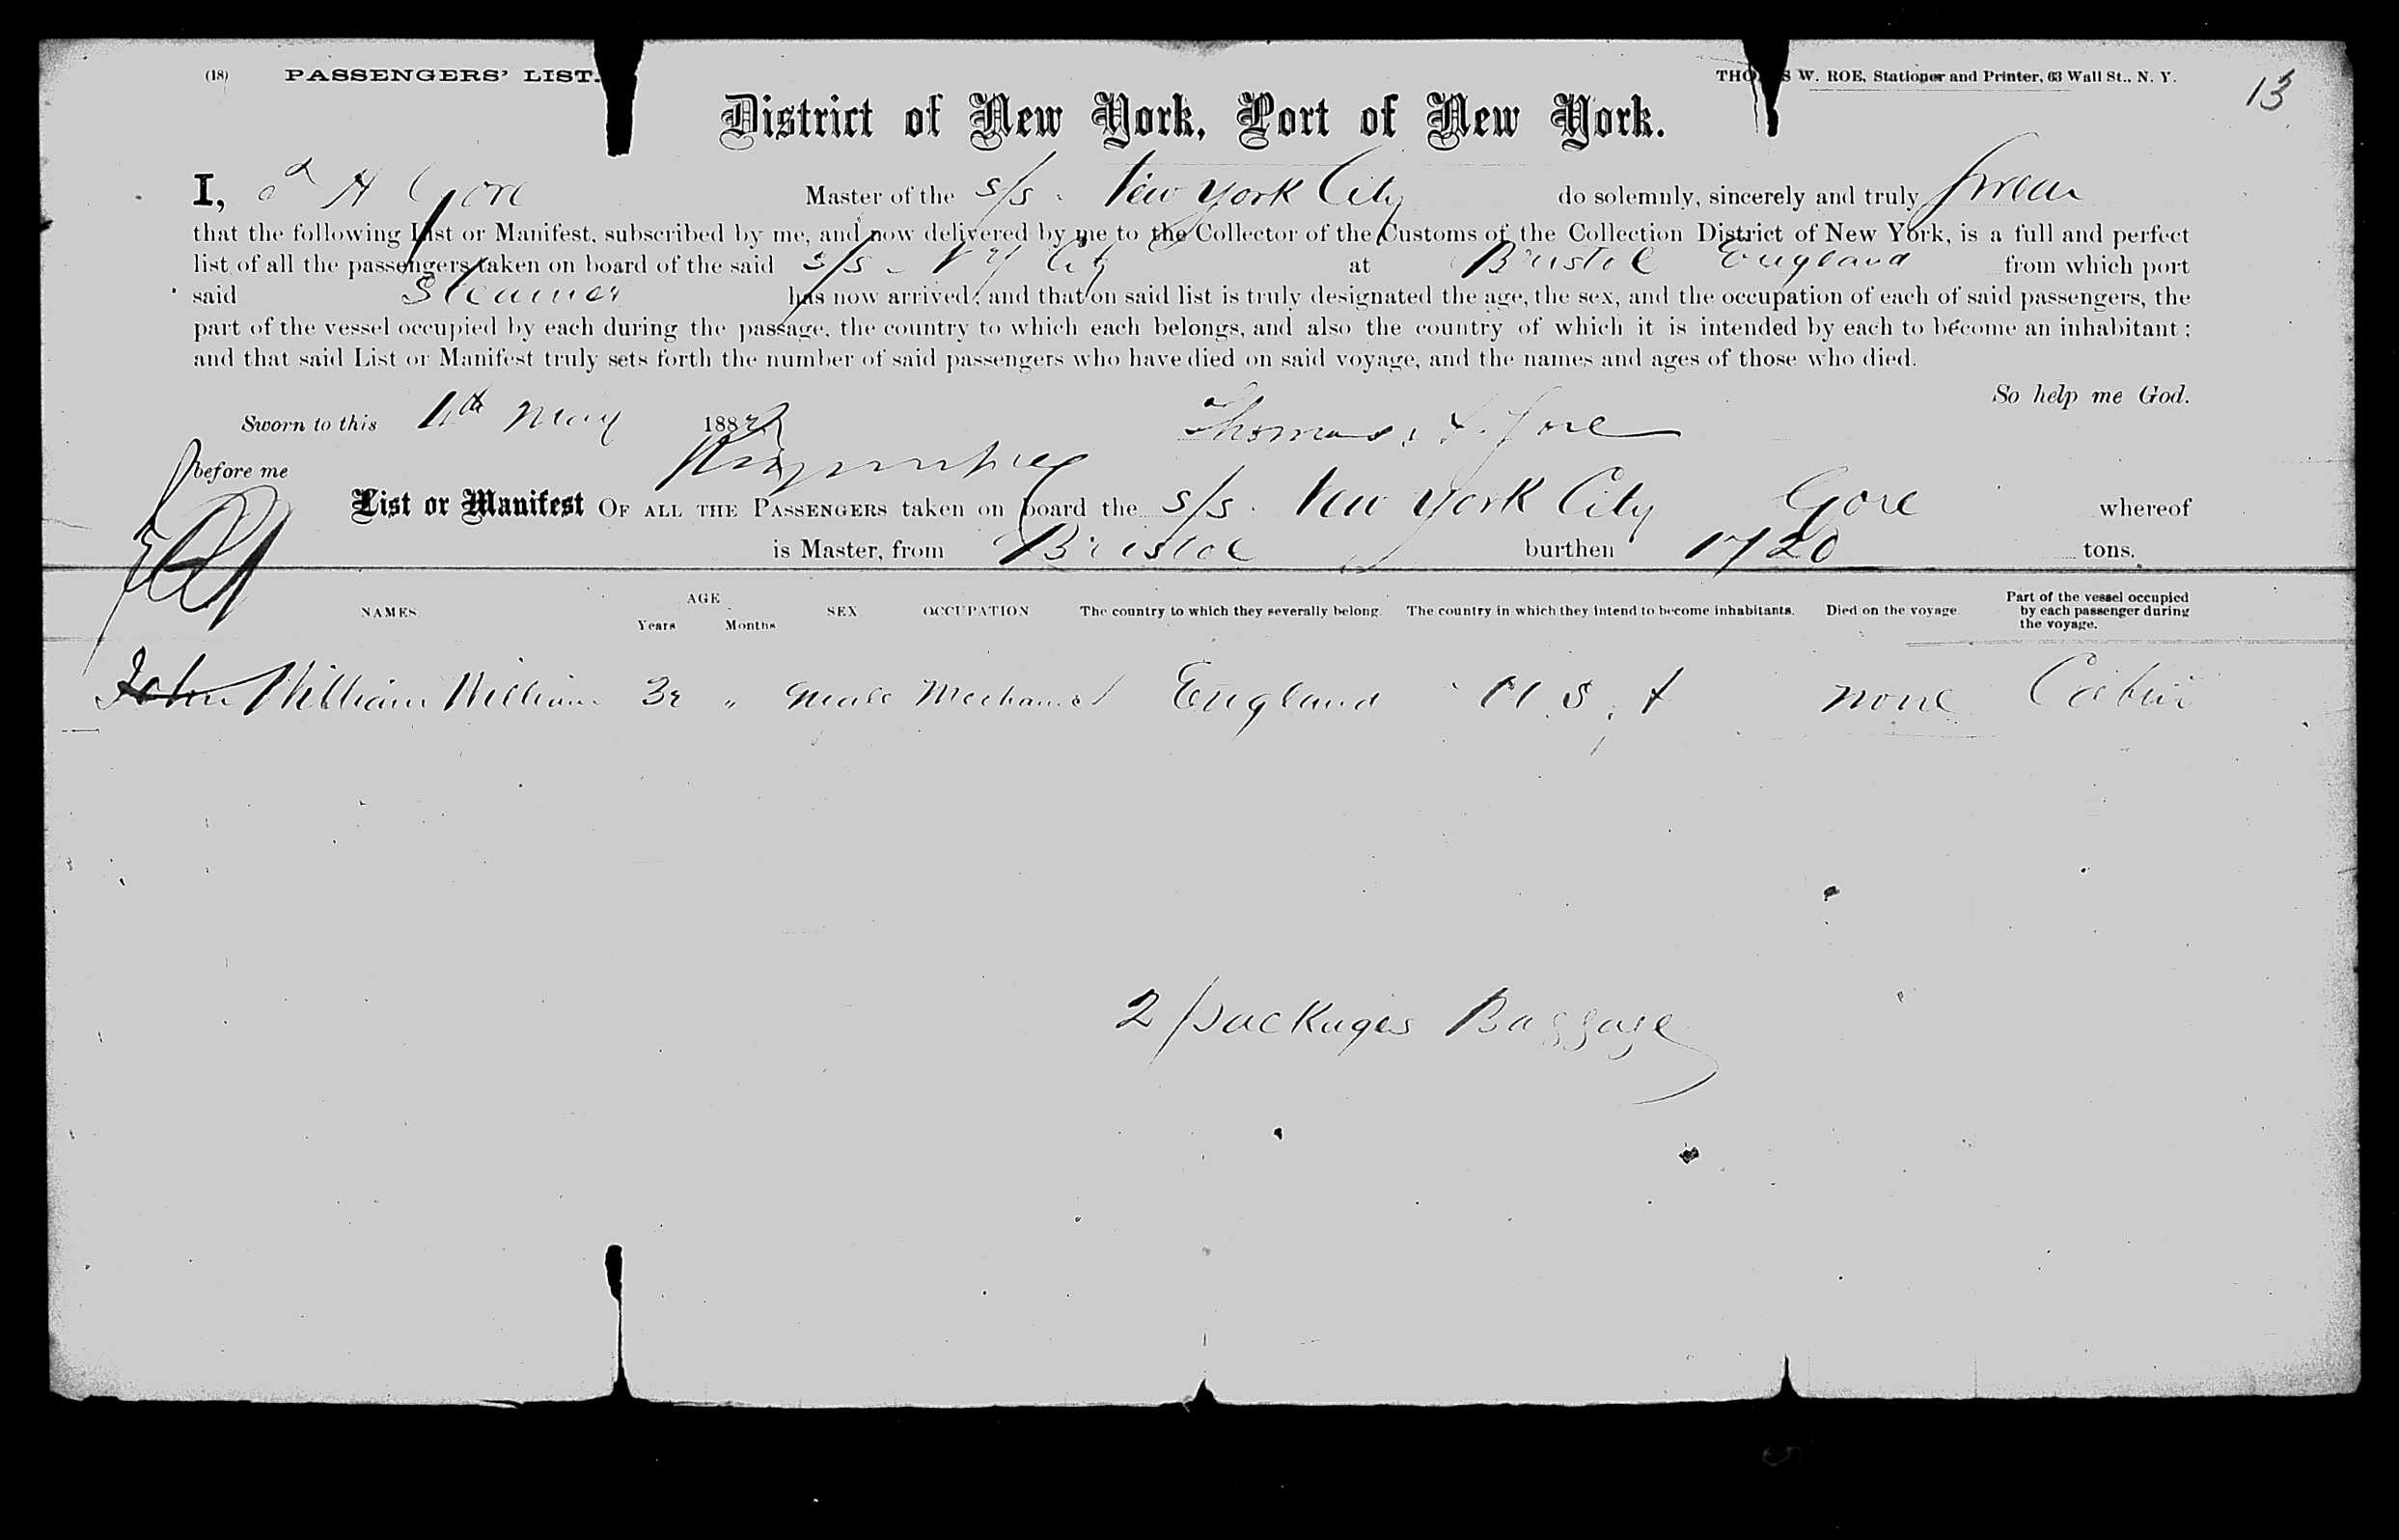 (18) PASSENGERS' LIST. THOMAS W. ROE, Stationer and Printer, 63 Wall St., N. Y. 13
District of New York, Port of New York.
I, H Gore Master of the s/s. New York City do solemnly, sincerely and truly swear
that the following List or Manifest, subscribed by me, and now delivered by me to the Collector of the Customs of the Collection District of New York, is a full and perfect
list of all the passengers taken on board of the said s/s - N Y City at Bristol England from which port
said Steamer has now arrived; and that on said list is truly designated the age, the sex, and the occupation of each of said passengers, the
part of the vessel occupied by each during the passage, the country to which each belongs, and also the country of which it is intended by each to become an inhabitant;
and that said List or Manifest truly sets forth the number of said passengers who have died on said voyage, and the names and ages of those who died.
So help me God.
Sworn to this May 188 Thomas Gore
before me
List or Manifest OF ALL THE PASSENGERS taken on board the s/s. New York City Gore whereof
is Master, from Bristol burthen 1720 tons.
NAMES AGE Years Months SEX OCCUPATION The country to which they severally belong. The country in which they intend to become inhabitants. Died on the voyage. Part of the vessel occupied by each passenger during the voyage.
John William William 32 " male Mechanist England U.S. none Cabin
2 packages Baggage